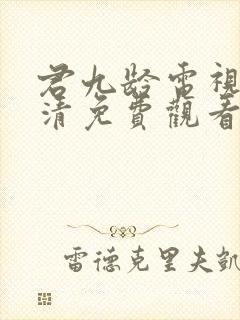 君九齡電視
清免費觀看
雷德克里夫凱